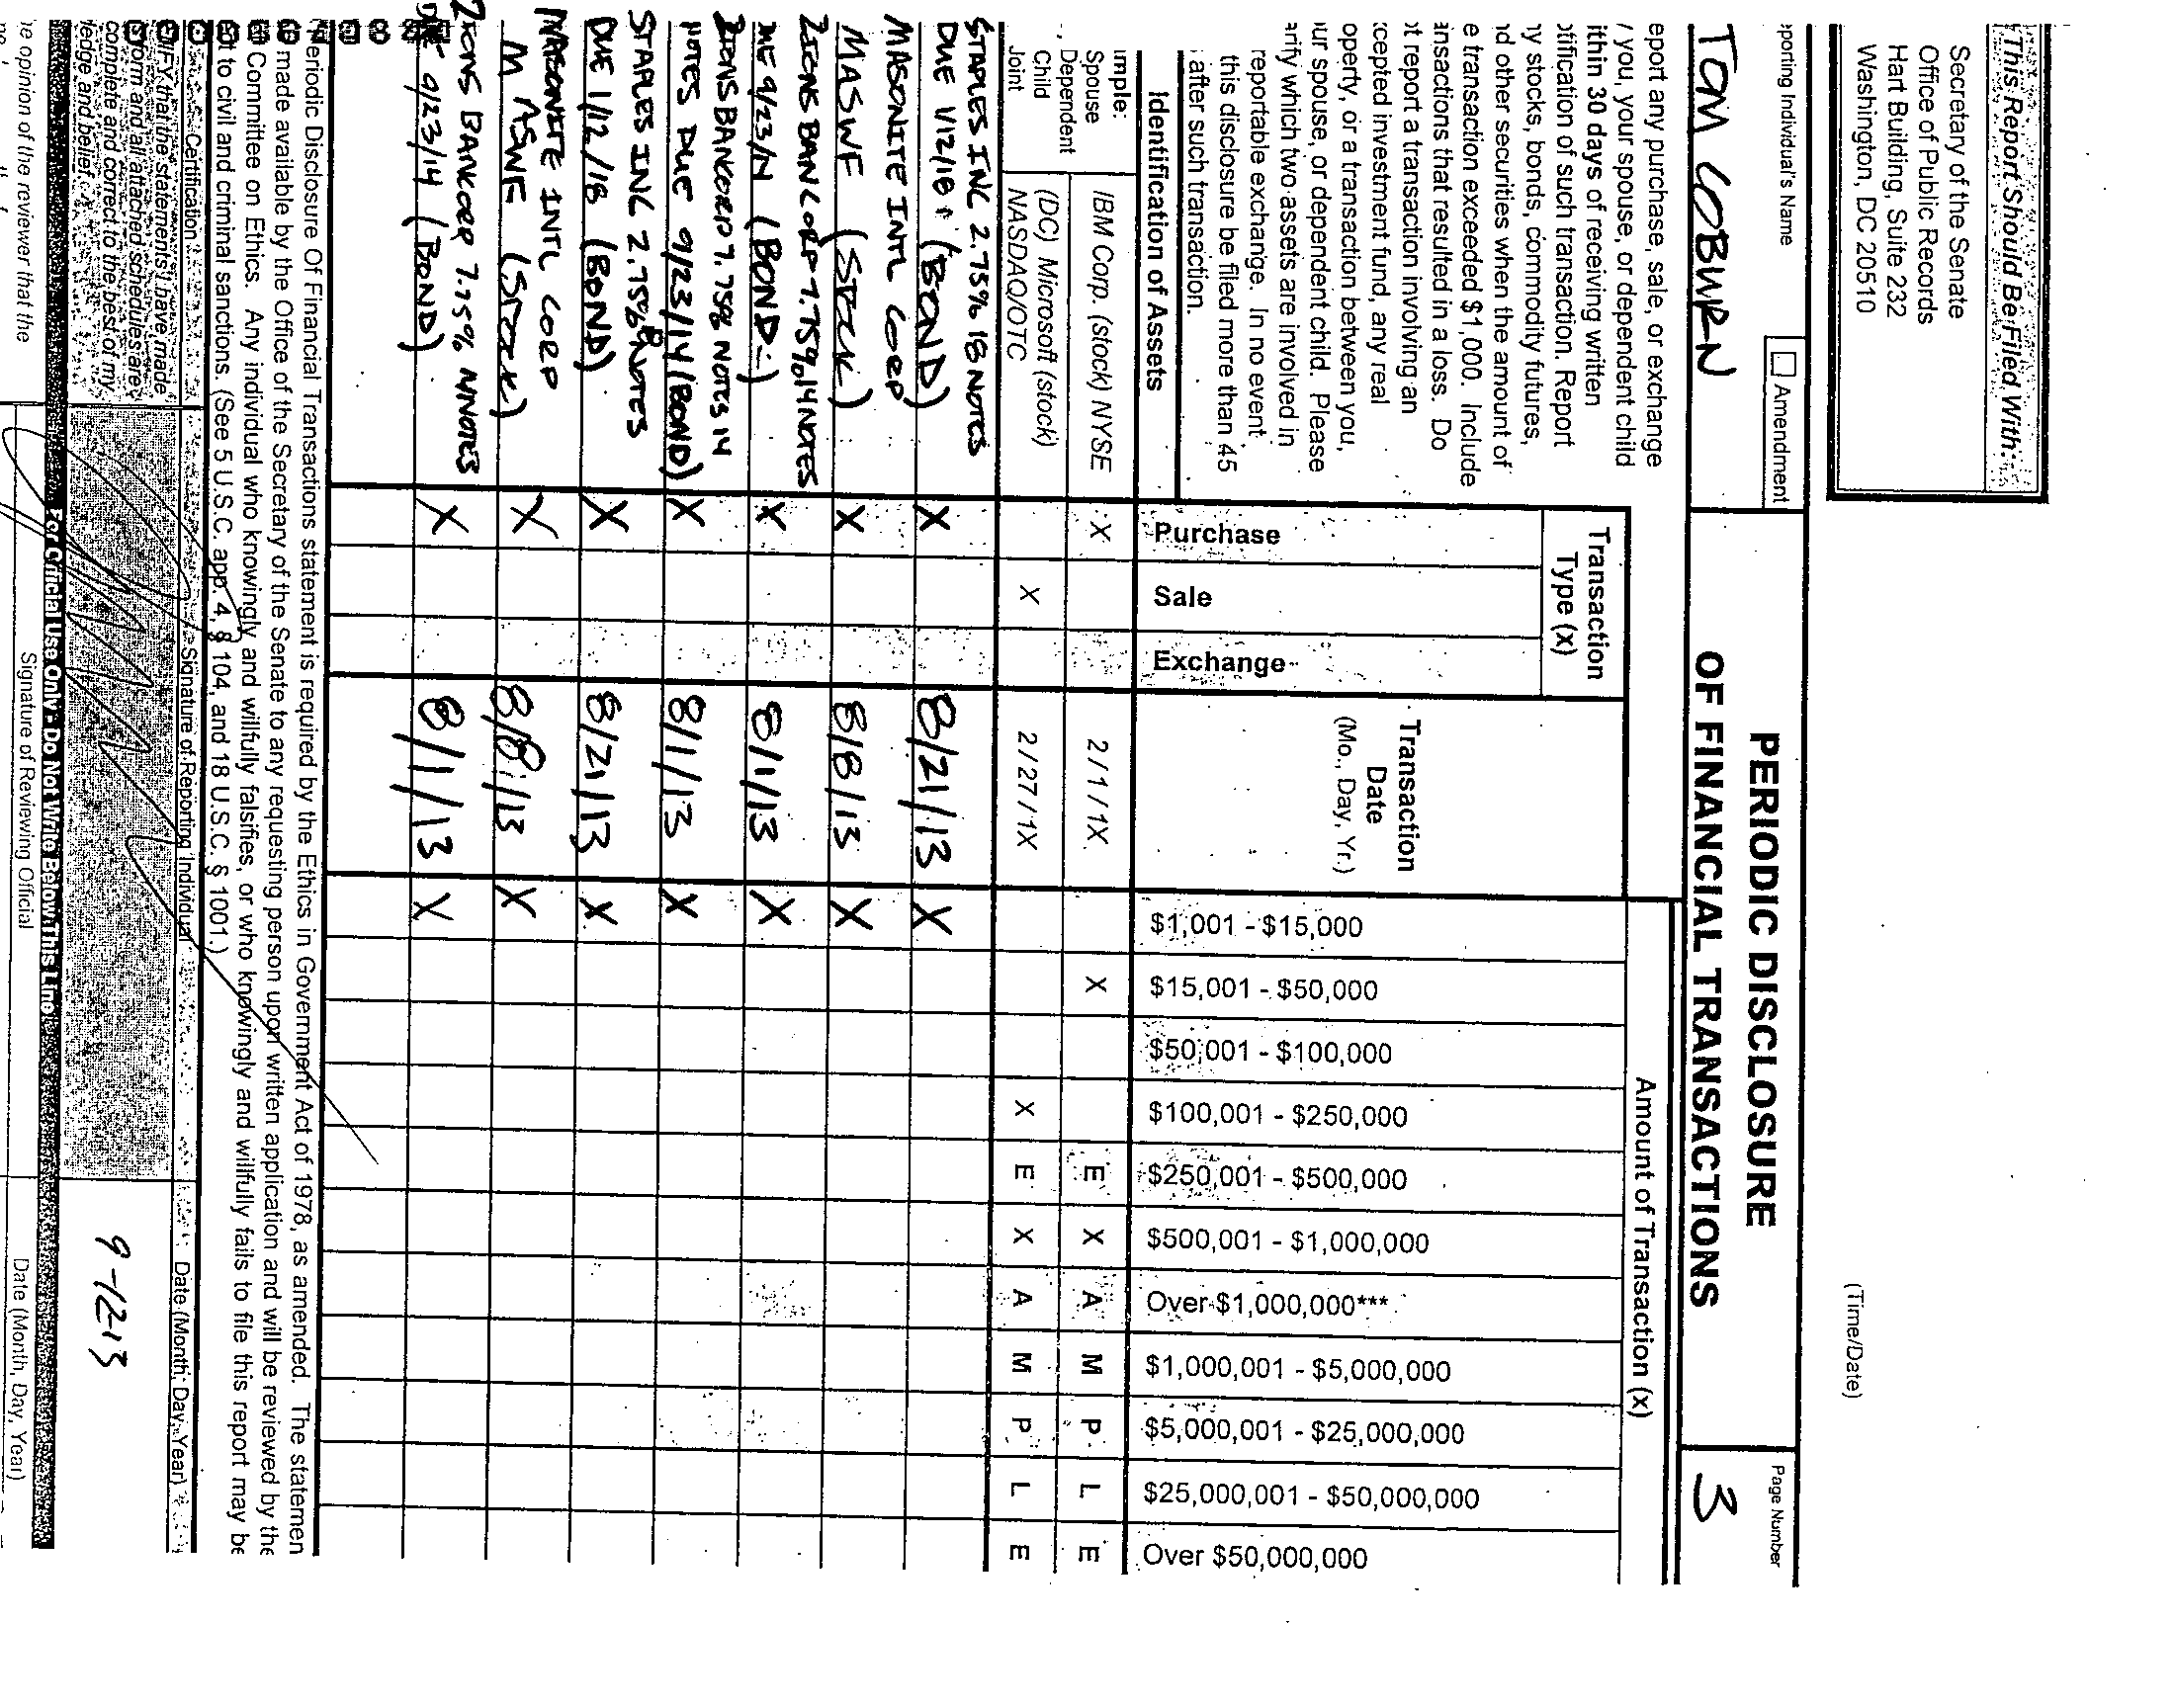 (Time/Date)
This Report Should Be Filed With:
Secretary of the Senate
Office of Public Records
Hart Building, Suite 232
Washington, DC 20510
PERIODIC DISCLOSURE
OF FINANCIAL TRANSACTIONS
porting Individual's Name
Amendment
Page Number
TOM COBURN
3
eport any purchase, sale, or exchange
you, your spouse, or dependent child
ithin 30 days of receiving written
otification of such transaction. Report
ny stocks, bonds, commodity futures,
nd other securities when the amount of
e transaction exceeded $1,000. Include
ansactions that resulted in a loss. Do
ot report a transaction involving an
xcepted investment fund, any real
operty, or a transaction between you,
ur spouse, or dependent child. Please
arify which two assets are involved in
reportable exchange. In no event
this disclosure be filed more than 45
after such transaction.
Identification of Assets
Transaction
Type (x)
Purchase
Sale
Exchange
Transaction
Date
(Mo., Day, Yr.)
Amount of Transaction (x)
$1,001 - $15,000
$15,001 - $50,000
$50,001 - $100,000
$100,001 - $250,000
$250,001 - $500,000
$500,001 - $1,000,000
Over $1,000,000***
$1,000,001 - $5,000,000
$5,000,001 - $25,000,000
$25,000,001 - $50,000,000
Over $50,000,000
mple:
Spouse
, Dependent
Child
Joint
IBM Corp. (stock) NYSE X 2/1/1X X E X A M P L E
(DC) Microsoft (stock)
NASDAQ/OTC X 2/27/1X X E X A M P L E
STAPLES INC 2.75% 18 NOTES
DUE 1/12/18 (BOND) X 8/21/13 X
MASONITE INTL CORP
MASWF (STOCK) X 8/8/13 X
ZIONS BANCORP 7.75% 14 NOTES
DUE 9/23/14 (BOND) X 8/1/13 X
ZIONS BANCORP 7.75% NOTES 14
NOTES DUE 9/23/14 (BOND) X 8/1/13 X
STAPLES INC 2.75% NOTES
DUE 1/12/18 (BOND) X 8/21/13 X
MASONITE INTL CORP
MASWF (STOCK) X 8/8/13 X
ZIONS BANCORP 7.75% NOTES
DUE 9/23/14 (BOND) X 8/1/13 X
Periodic Disclosure Of Financial Transactions statement is required by the Ethics in Government Act of 1978, as amended. The statemen
made available by the Office of the Secretary of the Senate to any requesting person upon written application and will be reviewed by the
Committee on Ethics. Any individual who knowingly and willfully falsifies, or who knowingly and willfully fails to file this report may be
ct to civil and criminal sanctions. (See 5 U.S.C. app. 4, § 104, and 18 U.S.C. § 1001.)
Certification
Signature of Reporting Individual
Date (Month, Day, Year)
IFY that the statements I have made
form and all attached schedules are
complete and correct to the best of my
ledge and belief
9-12-13
For Official Use Only - Do Not Write Below This Line
he opinion of the reviewer that the
Signature of Reviewing Official
Date (Month, Day, Year)